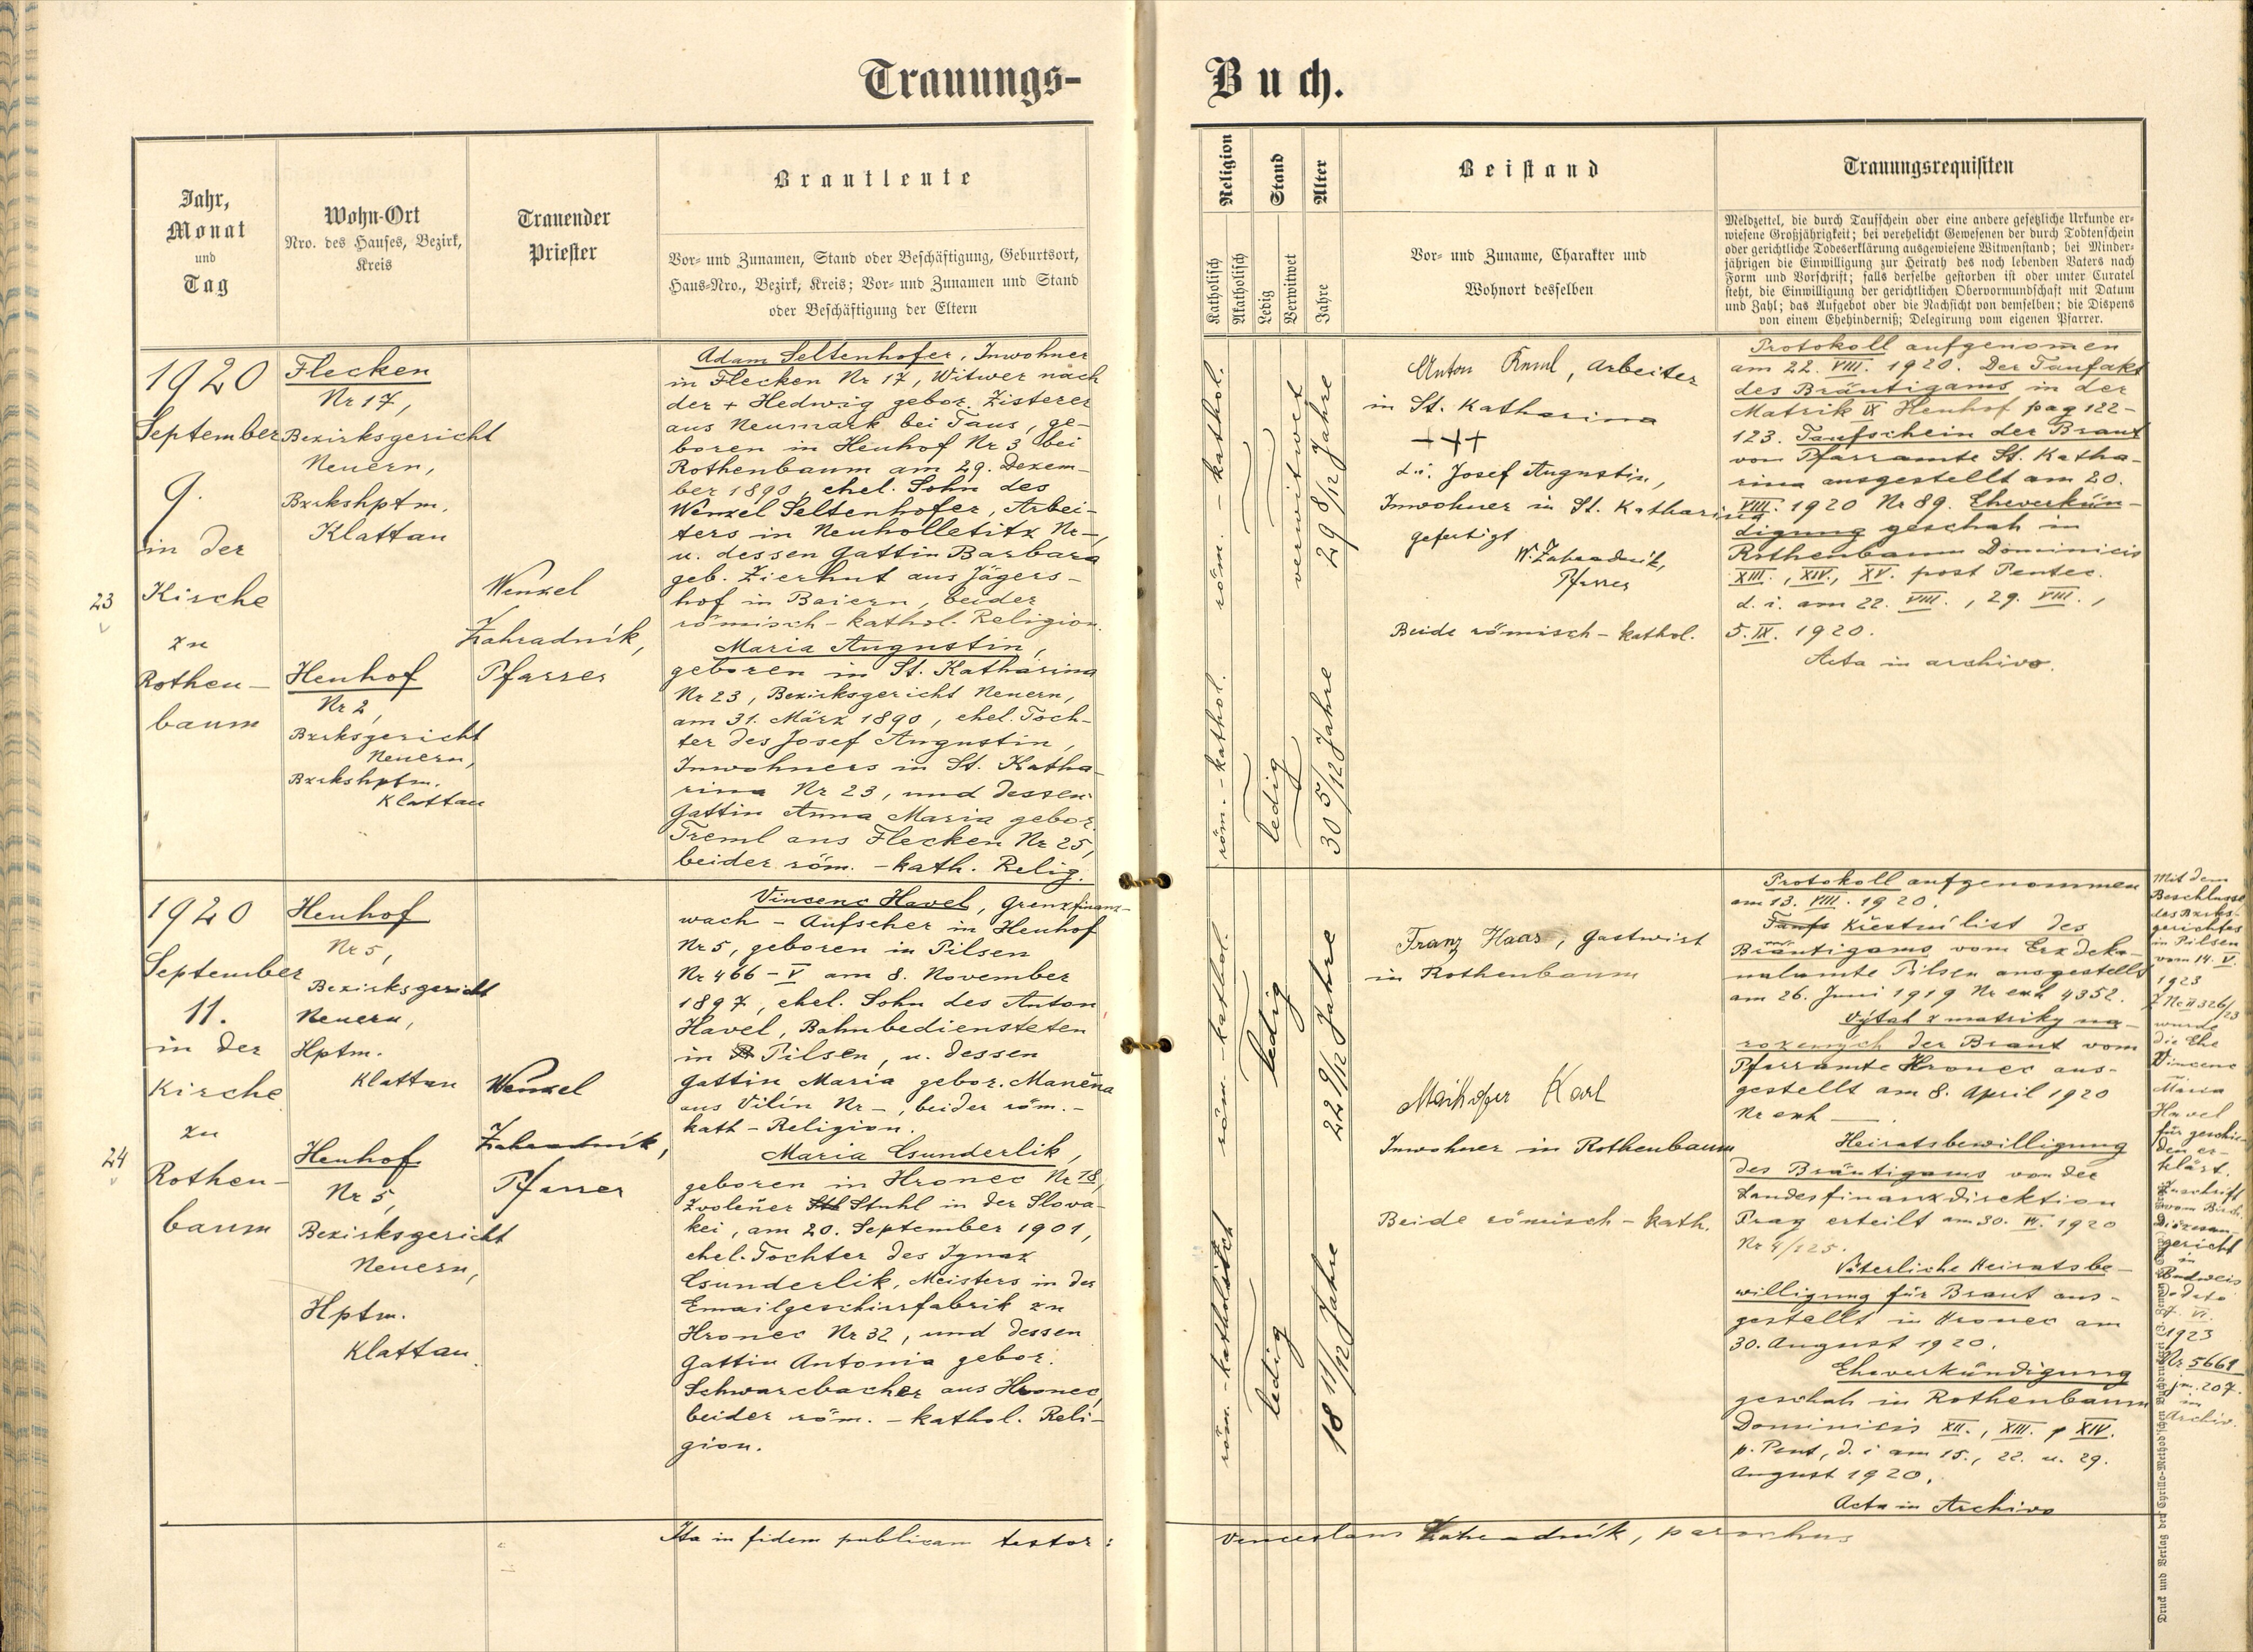 Trauungs-
Buch.
Jahr,
Monat
und
Tag
Wohn-Ort
Nro. des Hauses, Bezirk,
Kreis
Trauender
Priester
Brautleute
Vor- und Zunamen, Stand oder Beschäftigung, Geburtsort,
Haus-Nro., Bezirk, Kreis; Vor- und Zunamen und Stand
oder Beschäftigung der Eltern
Religion
Katholisch
Akatholisch
Stand
Ledig
Verwitwet
Alter
Jahre
Beistand
Vor- und Zuname, Charakter und
Wohnort desselben
Trauungsrequisiten
Meldzettel, die durch Taufschein oder eine andere gesetzliche Urkunde er-
wiesene Großjährigkeit; bei verehelicht Gewesenen der durch Todtenschein
oder gerichtliche Todeserklärung ausgewiesene Witwenstand; bei Minder-
jährigen die Einwilligung zur Heirath des noch lebenden Vaters nach
Form und Vorschrift; falls derselbe gestorben ist oder unter Curatel
steht, die Einwilligung der gerichtlichen Obervormundschaft mit Datum
und Zahl; das Aufgebot oder die Nachsicht von demselben; die Dispens
von einem Ehehinderniß; Delegirung vom eigenen Pfarrer.
23
1920
September
9.
in der
Kirche
zu
Rothen-
baum
Flecken
Nr 17,
Bezirksgericht
Neuern,
Bzrkshptm.
Klattau
Henhof
Nr 2,
Bzrksgericht
Neuern,
Bzrkshptm.
Klattau
Wenzel
Zahradník,
Pfarrer
Adam Seltenhofer, Inwohner
in Flecken Nr 17, Witwer nach
der + Hedwig gebor. Zisterer
aus Neumark bei Taus, ge-
boren in Henhof Nr 3 bei
Rothenbaum am 29. Dezem-
ber 1890, ehel. Sohn des
Wenzel Seltenhofer, Arbei-
ters in Neuholletitz Nr -,
u. dessen Gattin Barbara
geb. Zierhut aus Jägers-
hof in Baiern, beider
römisch-kathol. Religion.
Maria Augustin,
geboren in St. Katharina
Nr 23, Bezirksgericht Neuern,
am 31. März 1890, ehel. Toch-
ter des Josef Augustin,
Inwohners in St. Katha-
rina Nr 23, und dessen
Gattin Anna Maria gebor.
Treml aus Flecken Nr 25,
beider röm. - kath. Relig.
röm. - kathol.
verwitwet
29 8/12 Jahre
röm. - kathol.
ledig
30 5/12 Jahre
Anton , Arbeiter
in St. Katharina
+++
d. i. Josef Augustin,
Inwohner in St. Katharina
gefertigt
W. Zahradník,
Pfarrer
Beide römisch-kathol.
Protokoll aufgenomen
am 22. VIII. 1920. Der Taufakt
des Bräutigams in der
Matrik IX Henhof pag 122-
123. Taufschein der Braut
vom Pfarramte St. Katha-
rina ausgestellt am 20.
VIII. 1920 Nr 89. Eheverkün-
digung geschah in
Rothenbaum Dominicis
XIII., XIV., XV. post Pentec.
d. i. am 22. VIII., 29. VIII.,
5. IX. 1920.
Acta in archivo.
24
1920
September
11.
in der
Kirche
zu
Rothen-
baum
Henhof
Nr 5,
Bezirksgericht
Neuern,
Hptm.
Klattau
Henhof
Nr 5,
Bezirksgericht
Neuern,
Hptm.
Klattau.
Wenzel
Zahradník,
Pfarrer
Vincenc Havel, Grenzfinanz-
wach-Aufseher in Henhof
Nr 5, geboren in Pilsen
Nr 466-V am 8. November
1897, ehel. Sohn des Anton
Havel, Bahnbediensteten
in Pilsen, u. dessen
Gattin Maria gebor. Manena
aus Vilín Nr -, beider röm. -
kath - Religion.
Maria Csunderlik,
geboren in Hronec Nr 78,
Zvolener Stuhl in der Slova-
kei, am 20. September 1901,
ehel. Tochter des Ignaz
Csunderlik, Meisters in der
Emailgeschirrfabrik zu
Hronec Nr 32, und dessen
Gattin Antonia gebor.
Schwarcbacher aus Hronec,
beider röm. - kathol. Reli-
gion.
röm. - kathol.
ledig
22 9/12 Jahre
röm. - katholistch
ledig
18 11/12 Jahre
Franz Haas, Gastwirt
in Rothenbaum
Maikofer Karl
Inwohner in Rothenbaum
Beide römisch-kath.
Protokoll aufgenommen
am 13. VIII. 1920.
Taufs Křestní list des
Bräutigams vom Erzdeka-
nalamte Pilsen ausgestellt
am 26. Juni 1919 Nr exh 4352.
Výtah z matriky na-
rozených der Braut vom
Pfarramte Hronec aus-
gestellt am 8. April 1920
Nr exh -.
Heiratsbewilligung
des Bräutigams von der
Landesfinanzdirektion
Prag erteilt am 30. 1920
Nr 4/125.
Väterliche Heiratsbe-
willigung für Braut aus-
gestellt in Hronec am
30. August 1920.
Eheverkündigung
geschah in Rothenbaum
Dominicis XII., XIII., XIV.
p. Pent, d. i. am 15., 22. u. 29.
August 1920.
Acta in Archivo
Mit dem
Beschlusse
des Bzrks-
gerichtes
in Pilsen
vom 14. V.
1923
Z Nc II 326/23
wurde
die Ehe
Vincenc
Maria
Havel
für geschie-
den er-
klärt.
Zuschrift
vom Bisch.
Diözesan
gericht
in
Budweis
de dato
VI.
1923
Nr 5661
jm. 207.
im
Archiv.
Ita in fidem publicam testor:
Venceslaus Zahradník, parochus
Druck und Verlag der Cyrillo-Method'schen Buchdruckerei